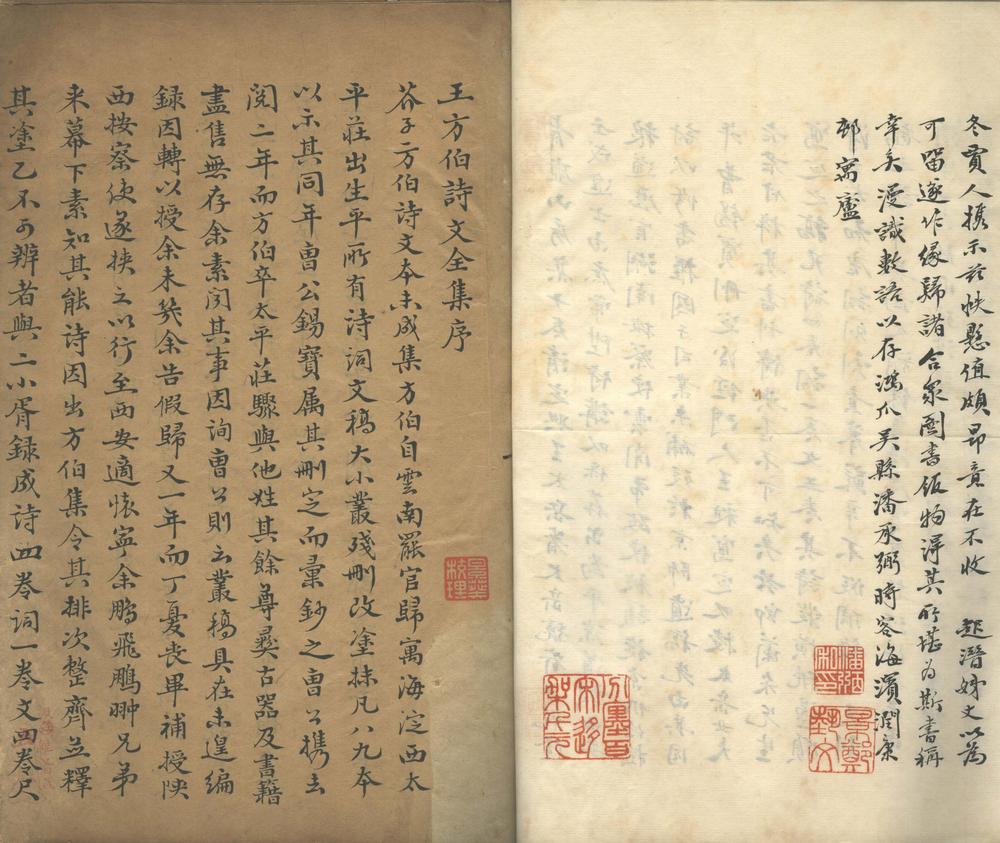 冬賈人携示玆帙懸值頗昂竟在不收 起潛姊丈以為
可留遂作緣歸諸合衆圖書館物得其所堪為斯書稱
幸矣漫識數語以存鴻爪吳縣潘承弼時客海濱潤康
邨寓廬
潘承弼印
景鄭
王方伯詩文全集序
芥子方伯詩文本未成集方伯自雲南罷官歸寓海淀西太
平莊出生平所有詩詞文稿大小叢殘刪改塗抹凡八九本
以示其同年曹公錫寶属其刪定而彙鈔之曹公携去
閱二年而方伯卒太平莊驟與他姓其餘尊彝古器及書籍
盡售無存余素聞其事因詢曹公則云叢稿具在未遑編
録因轉以授余未幾余告假歸又一年而丁憂喪畢補授陝
西按察使遂挾之以行至西安適懷寧余鵬飛鵬翀兄弟
来幕下素知其能詩因出方伯集令其排次整齊並釋
其塗乙不可辨者與二小胥録成詩四卷詞一卷文四卷尺